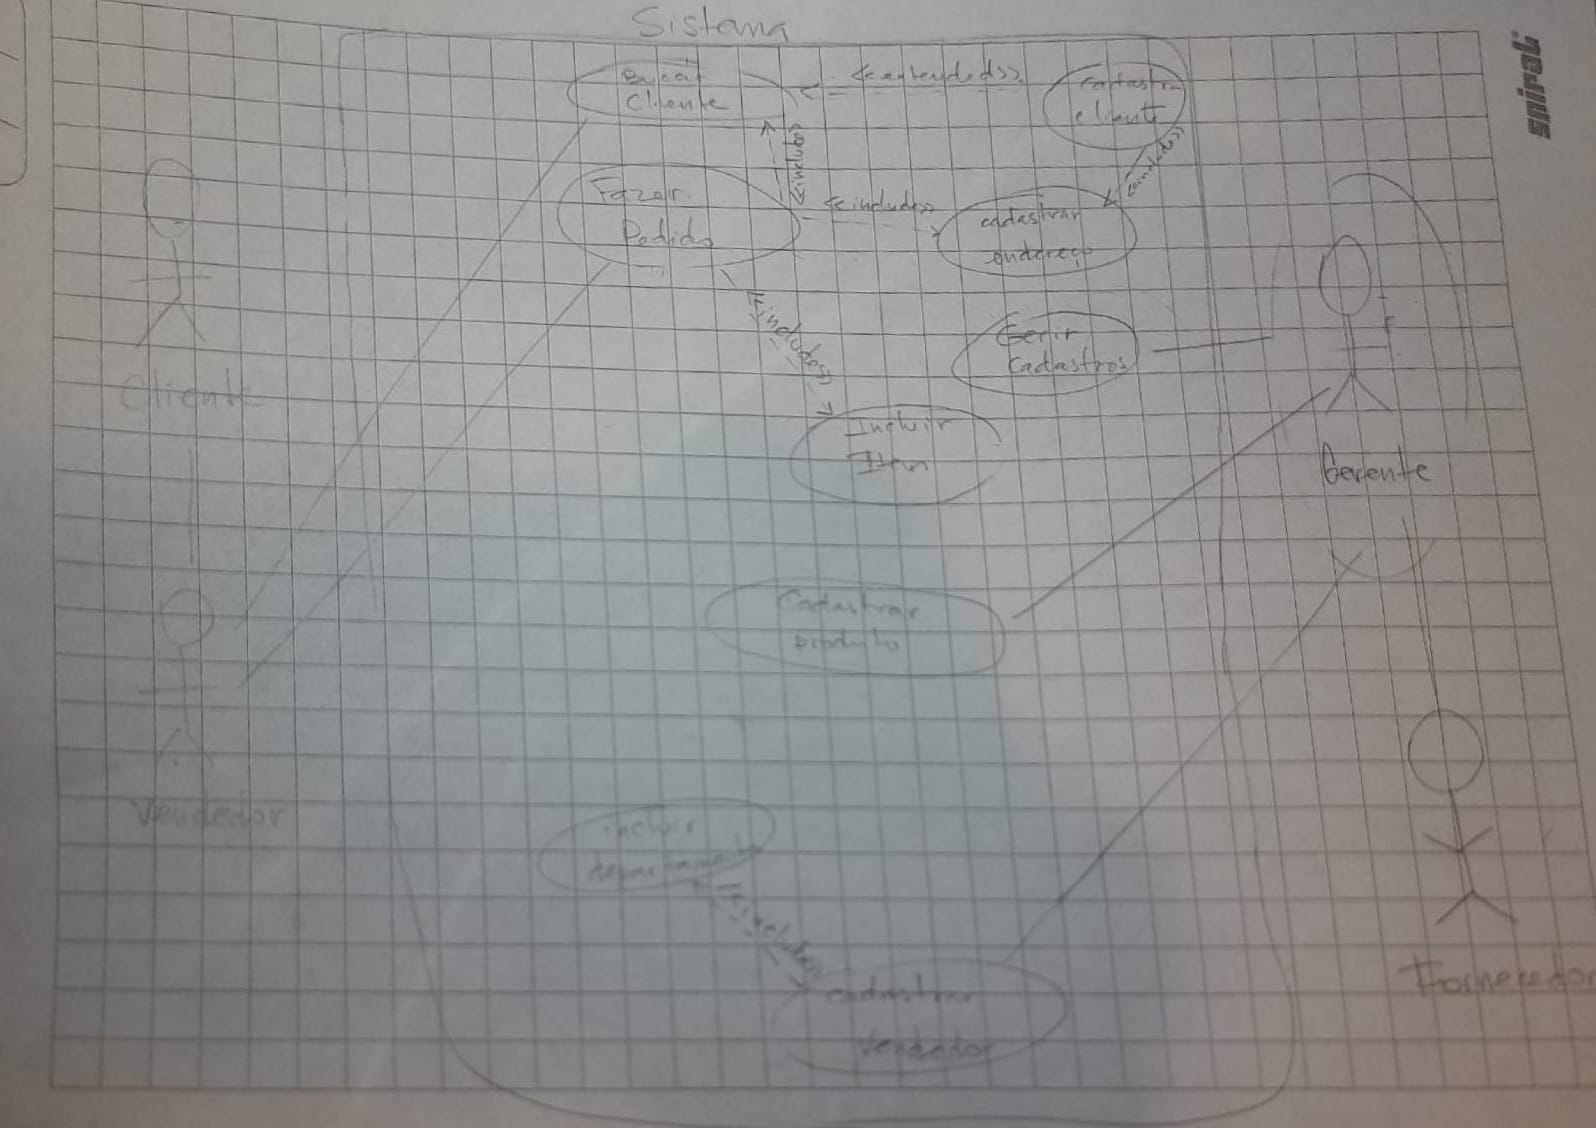 Sistema
Buscar
Cliente
<<extended>>
cadastrar
cliente
<<include>>
<<include>>
Fazer
Pedido
<<include>>
cadastrar
endereço
Gerir
Cadastros
<<include>>
Incluir
Item
Cliente
Gerente
Cadastrar
produto
Vendedor
incluir
departamento
<<include>>
cadastrar
Vendedor
Fornecedor
spiral